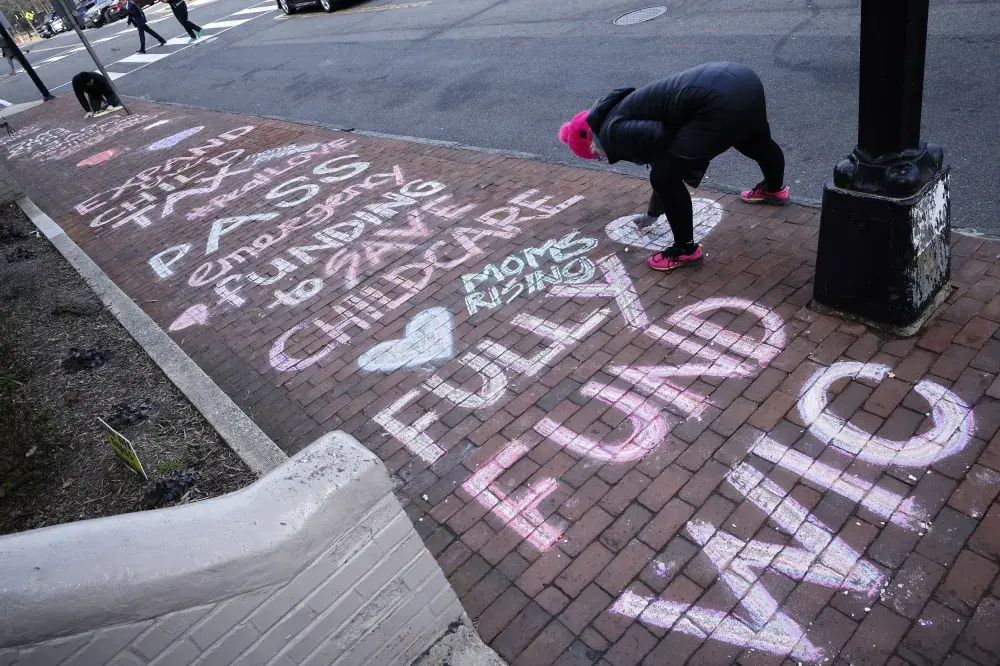 EXPAND
CHILD
TAX
PASS
emergency
FUNDING
to SAVE
CHILDCARE
MOMS
RISING
FULLY
FUND
WIC